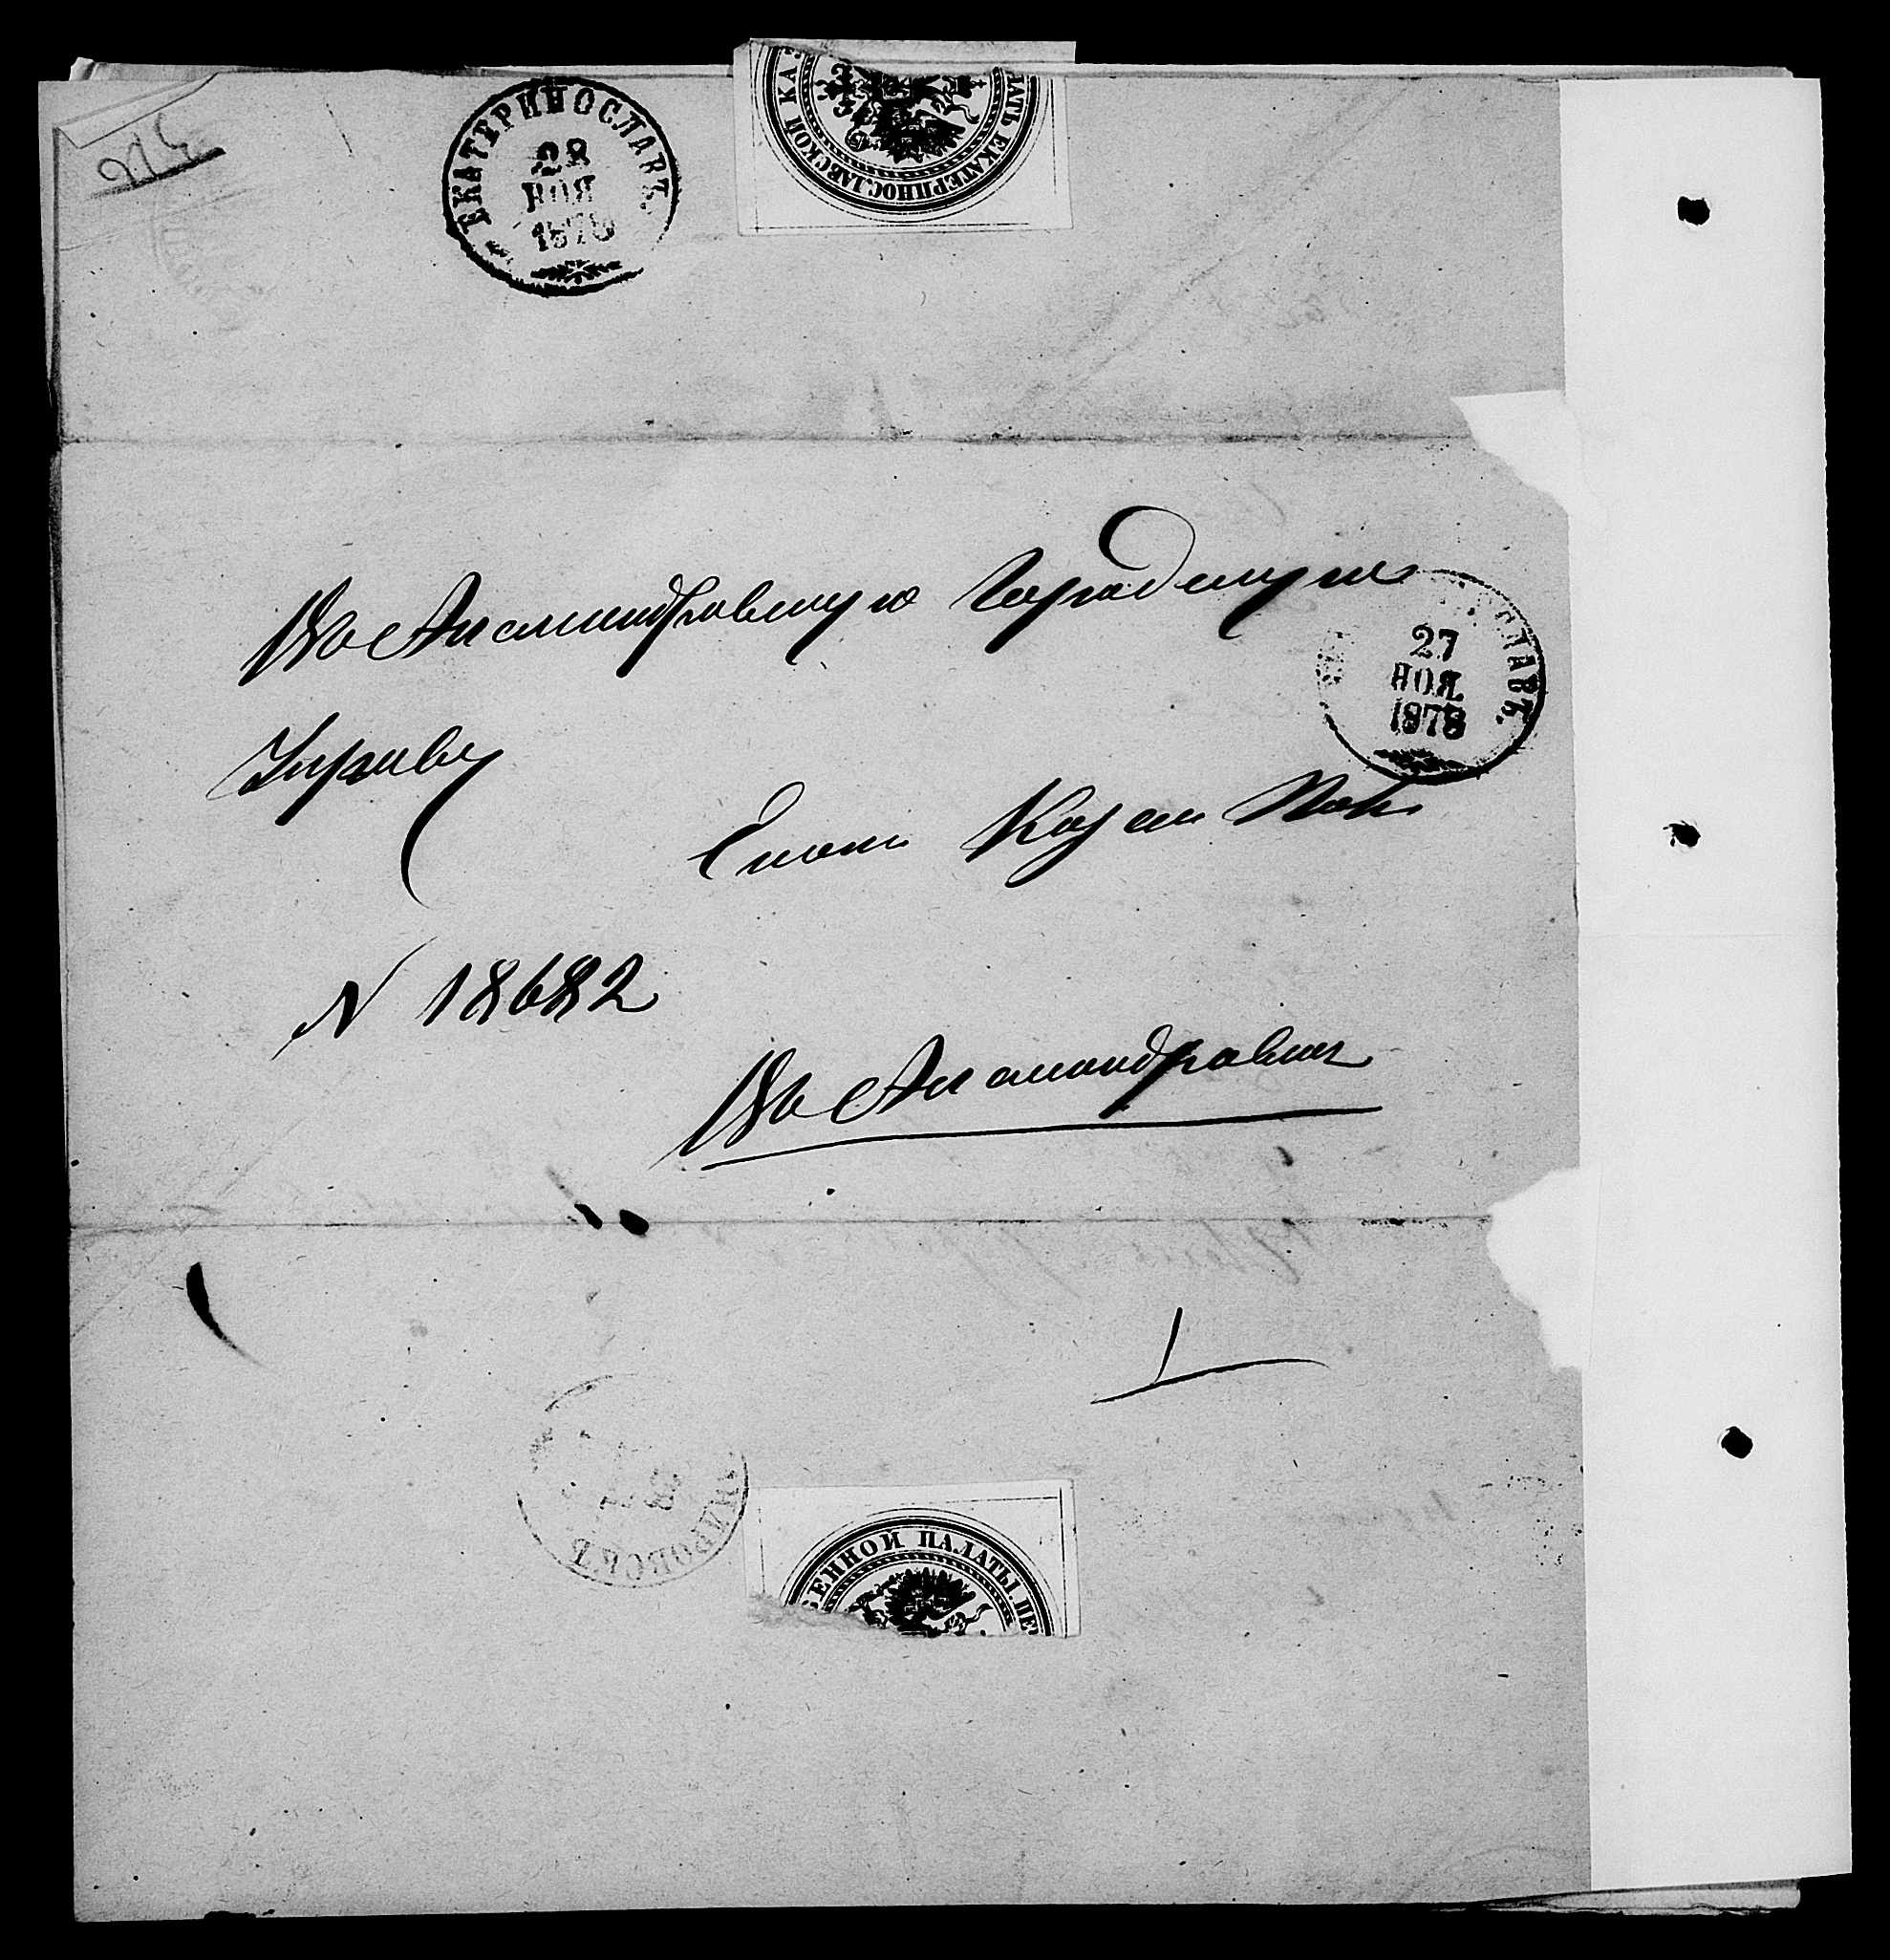 ЕКАТЕРИНОСЛАВЪ.
28
НОЯ
1878
ПЕЧАТЬ ЕКАТЕРИНОСЛАВСКОЙ КАЗ
Въ Александровскую Городскую
Управу
ОСЛАВЪ.
27
НОЯ
1878
Екат. Казен. Пал.
N 18682
Въ Александровскъ
1
ЗЕННОЙ ПАЛАТЫ. ПЕ
РОВСКЪ